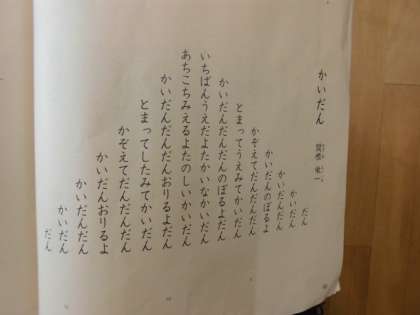 かいだん
関根 栄一
だん
かいだん
かいだんだん
かいだんのぼるよ
かぞえてだんだんだん
とまってうえみてかいだん
かいだんだんだんのぼるよだん
いちばんうえだよたかいなかいだん
あちこちみえるよたのしいかいだん
かいだんだんだんおりるよだん
とまってしたみてかいだん
かぞえてだんだんだん
かいだんおりるよ
かいだんだん
かいだん
だん